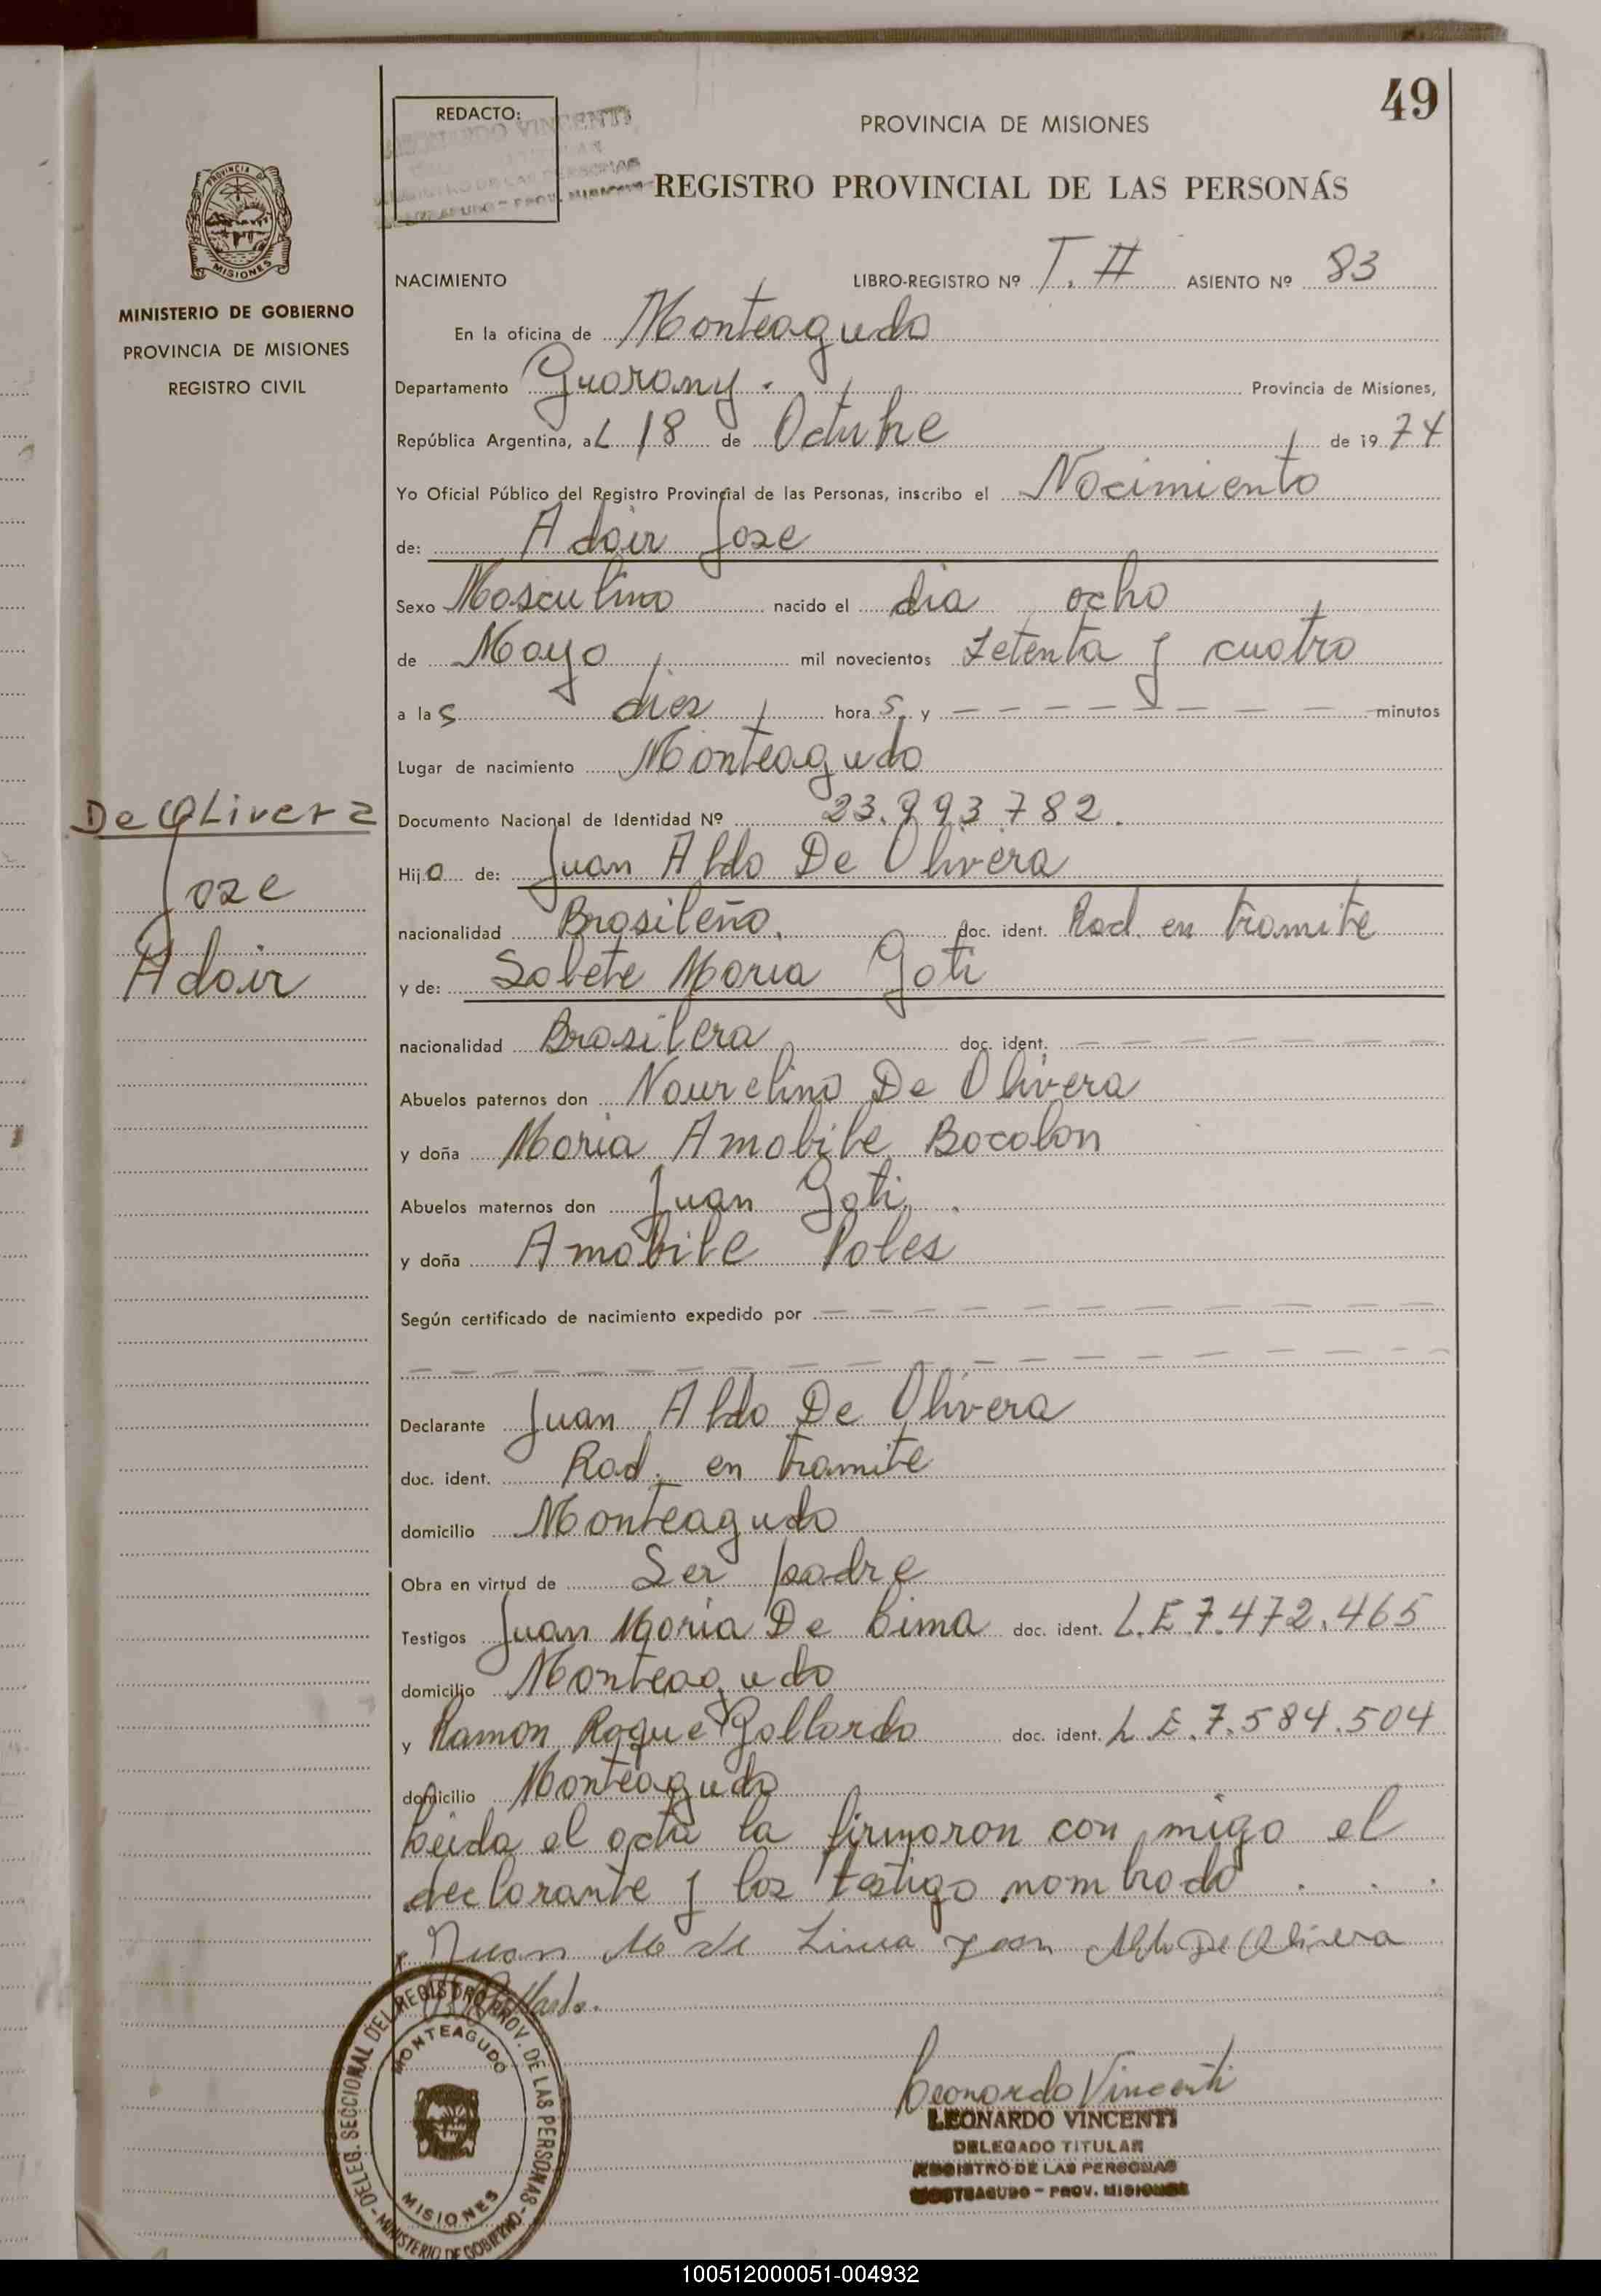 49
REDACTO:
PROVINCIA DE MISIONES
REGISTRO PROVINCIAL DE LAS PERSONAS
PROVINCIA DE
MISIONES
MINISTERIO DE GOBIERNO
PROVINCIA DE MISIONES
REGISTRO CIVIL
NACIMIENTO LIBRO-REGISTRO Nº T. II ASIENTO Nº 83
En la oficina de Monteagudo
Departamento Guarany. Provincia de Misiones,
República Argentina, a L 18 de Octubre de 19 74
Yo Oficial Público del Registro Provincial de las Personas, inscribo el Nacimiento
de: Adair Joze
Sexo Masculino nacido el dia ocho
de Mayo mil novecientos Setenta y cuatro
a las diez horas y — — — — — — — — minutos
Lugar de nacimiento Monteagudo
De Olivera
Joze
Adair
Documento Nacional de Identidad Nº 23.993.782.
Hijo de: Juan Aldo De Olivera
nacionalidad Brasileño. doc. ident. Rad. en tramite
y de: Salete Maria Goti
nacionalidad Brasilera doc. ident. — — — — — — — —
Abuelos paternos don Naurelino De Olivera
y doña Maria Amabile Bocolon
Abuelos maternos don Juan Goti.
y doña Amabile Poles
Según certificado de nacimiento expedido por — — — — — — — — — —
— — — — — — — — — — — — — — — —
Declarante Juan Aldo De Olivera
doc. ident. Rad. en tramite
domicilio Monteagudo
Obra en virtud de Ser padre
Testigos Juan Maria De Lima doc. ident. L.E 7.472.465
domicilio Monteagudo
y Ramon Roque Gallardo doc. ident. L.E. 7.584.504
domicilio Monteagudo
Leida el acta la firmaron con migo el
declarante y los testigo nombrado . . .
Juan M de Lima Juan Aldo De Olivera
DELEG. SECCIONAL DEL REGISTRO PROV. DE LAS PERSONAS
MONTEAGUDO
MISIONES
MINISTERIO DE GOBIERNO
Leonardo Vincenti
LEONARDO VINCENTI
DELEGADO TITULAR
REGISTRO DE LAS PERSONAS
MONTEAGUDO - PROV. MISIONES
100512000051-004932